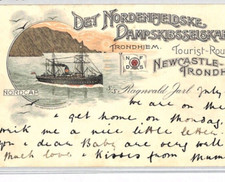 DET NORDENFJELDSKE
DAMPSKIBSSELSKA
TRONDHJEM.
Tourist-Rou
NEWCASTLE-
TRONDH
NORDCAP.
S.S. Ragnvald Jarl July
We are on the
get home, on Monday,
write me a nice little letter
you & dear Baby are very well
much love & kisses from Mum